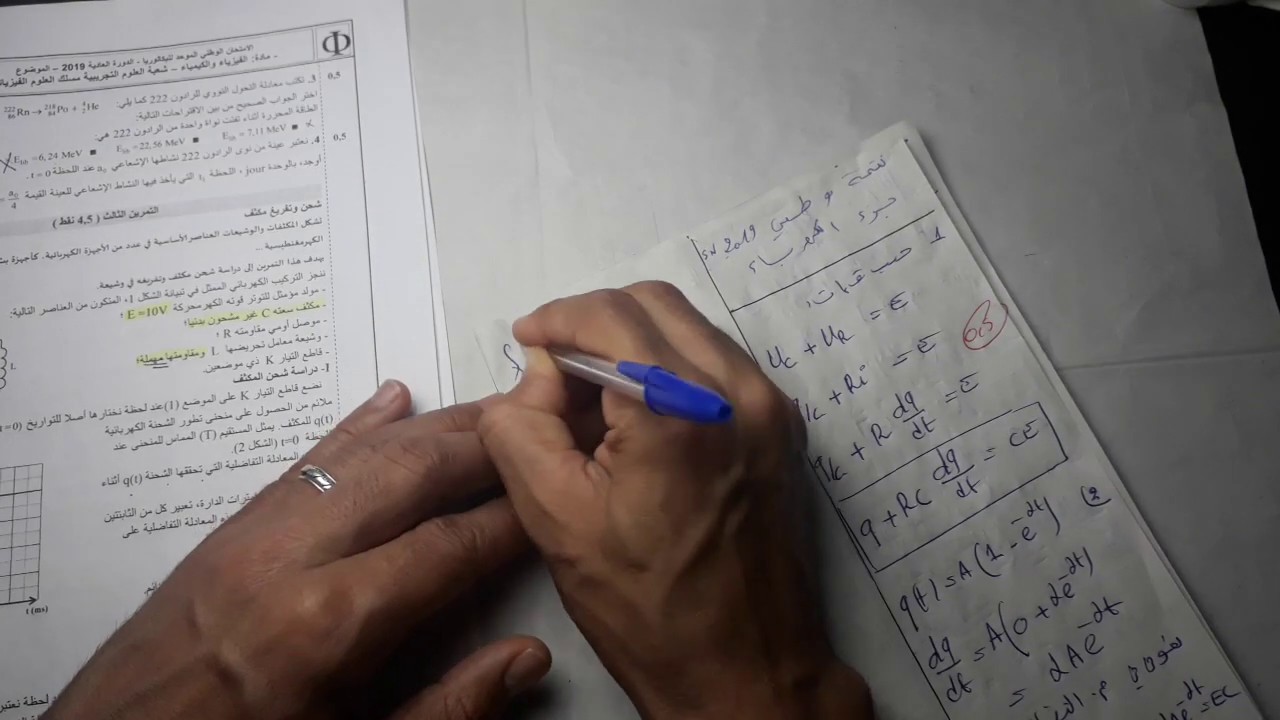 الامتحان الوطني الموحد للبكالوريا - الدورة العادية 2019 – الموضوع
- مادة: الفيزياء والكيمياء – شعبة العلوم التجريبية مسلك العلوم الفيزيائية
Φ
0,5
3. تكتب معادلة التحول النووي للرادون 222 كما يلي: ²²²₈₆Rn → ²¹⁸₈₄Po + ⁴₂He
اختر الجواب الصحيح من بين الاقتراحات التالية:
الطاقة المحررة أثناء تفتت نواة واحدة من الرادون 222 هي:
■ E_lib = 7,11 MeV ■ E_lib = 22,56 MeV ■ E_lib = 6,24 MeV
0,5
4. نعتبر عينة من نوى الرادون 222 نشاطها الإشعاعي a₀ عند اللحظة t = 0.
أوجد، بالوحدة jour، اللحظة t₁ التي يأخذ فيها النشاط الإشعاعي للعينة القيمة = a₀/4
التمرين الثالث ( 4,5 نقط )
شحن وتفريغ مكثف
تشكل المكثفات والوشيعات العناصر الأساسية في عدد من الأجهزة الكهربائية، كأجهزة
الكهرمغنطيسية ...
يهدف هذا التمرين إلى دراسة شحن مكثف وتفريغه في وشيعة.
ننجز التركيب الكهربائي الممثل في تبيانة الشكل 1، المتكون من العناصر التالية:
- مولد مؤمثل للتوتر قوته الكهرمحركة E=10V ؛
- مكثف سعته C غير مشحون بدئيا؛
- موصل أومي مقاومته R ؛
- وشيعة معامل تحريضها L ومقاومتها مهملة؛
- قاطع التيار K ذي موضعين.
1- دراسة شحن المكثف
نضع قاطع التيار K على الموضع (1) عند لحظة نختارها أصلا للتواريخ (t=0)
ملائم من الحصول على منحنى تطور الشحنة الكهربائية
q(t) للمكثف. يمثل المستقيم (T) المماس للمنحنى عند
اللحظة t=0 (الشكل 2).
المعادلة التفاضلية التي تحققها الشحنة q(t) أثناء
الدارة، تعبير كل من الثابتتين
المعادلة التفاضلية على
t (ms)
L
تتمة وطني SN 2019
جزء الكهرباء
1 حسب ق.إ.ت،
u_C + u_R = E
0,5
+ Ri = E
+ R dq/dt = E
q + RC dq/dt = CE
2) q(t) = A(1 - e^-αt)
dq/dt = A(0 + αe^-αt)
= αAe^-αt
نعوض
= EC